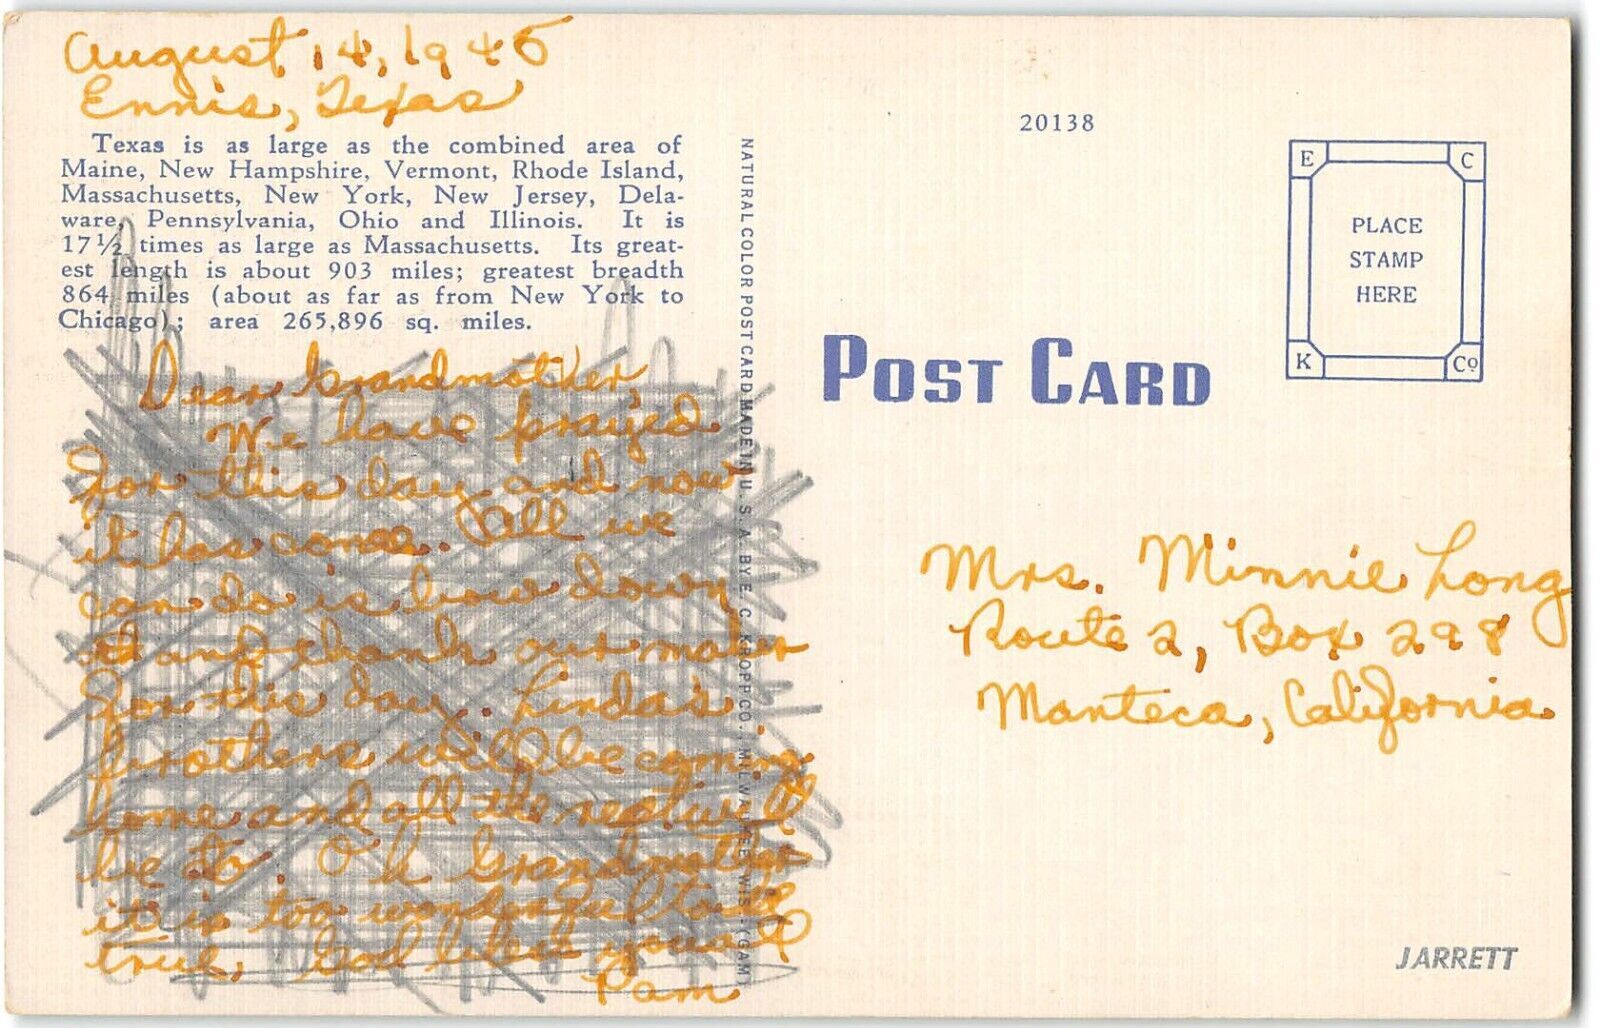 August 14, 1945
Ennis, Texas
Texas is as large as the combined area of
Maine, New Hampshire, Vermont, Rhode Island,
Massachusetts, New York, New Jersey, Dela-
ware, Pennsylvania, Ohio and Illinois. It is
17½ times as large as Massachusetts. Its great-
est length is about 903 miles; greatest breadth
864 miles (about as far as from New York to
Chicago); area 265,896 sq. miles.
Dear Grandmother,
We have prayed
for this day and now
it has come. All we
can do is bow down
and thank our maker
for this day. Linda's
brothers will be coming
home and all the rest will
be to. Oh Grandmother
it is too wonderful to be
true. God bless you all
Pam
NATURAL COLOR POST CARD MADE IN U. S. A. BY E. C. KROPP CO., MILWAUKEE, WIS.
20138
E C
PLACE
STAMP
HERE
K Co
POST CARD
Mrs. Minnie Long
Route 2, Box 298
Manteca, California
JARRETT